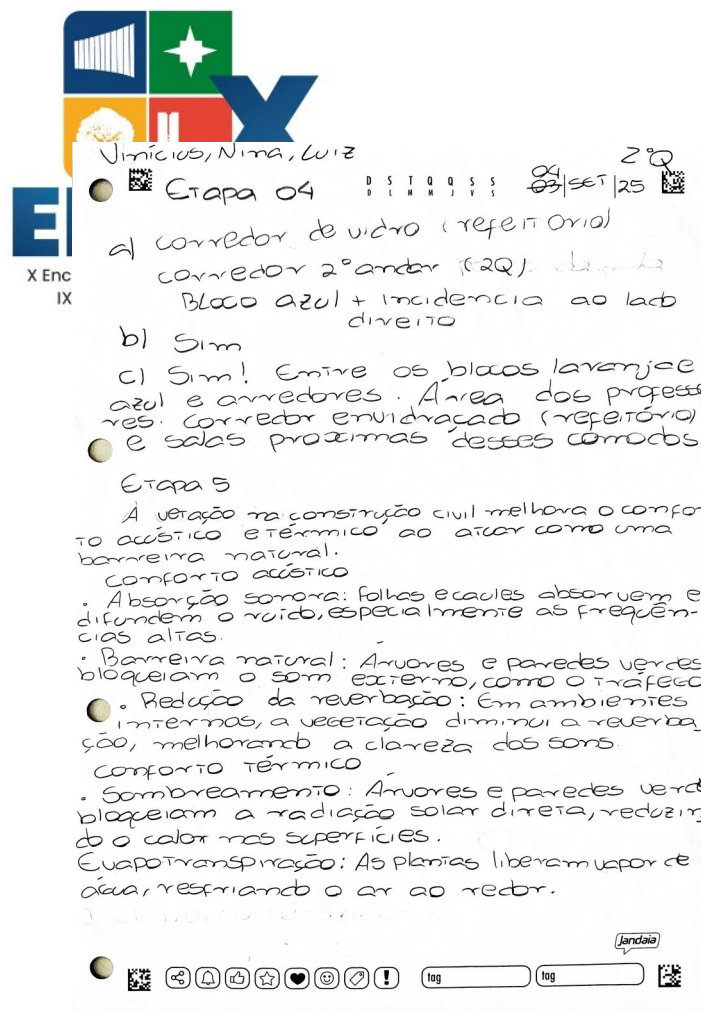 X
E
X Enc
IX
Vinícius, Nina, Luiz 2°Q
Etapa 04 D S T Q Q S S 04
D L M M J V S 03/SET/25
a) corredor de vidro (refeitório)
corredor 2° andar (2Q)
Bloco azul + incidencia ao lado
direito
b) Sim
c) Sim! Entre os blocos laranja e
azul e arredores. Área dos professo
res. corredor envidraçado (refeitório)
e salas proximas desses comodos
Etapa 5
A vetação na construção civil melhora o confor
to acústico e térmico ao atuar como uma
barreira natural.
conforto acústico
• Absorção sonora: Folhas e caules absorvem e
difundem o ruído, especialmente as frequên-
cias altas.
• Barreira natural: Arvores e paredes verdes
bloqueiam o som externo, como o tráfego
• Redução da reverbação: Em ambientes
internos, a vegetação diminui a reverba_
ção, melhorando a clareza dos sons.
conforto térmico
• Sombreamento: Arvores e paredes verd
bloqueiam a radiação solar direta, reduzin
do o calor nas superfícies.
Evapotranspiração: As plantas liberam vapor de
água, resfriando o ar ao redor.
jandaia
tag tag